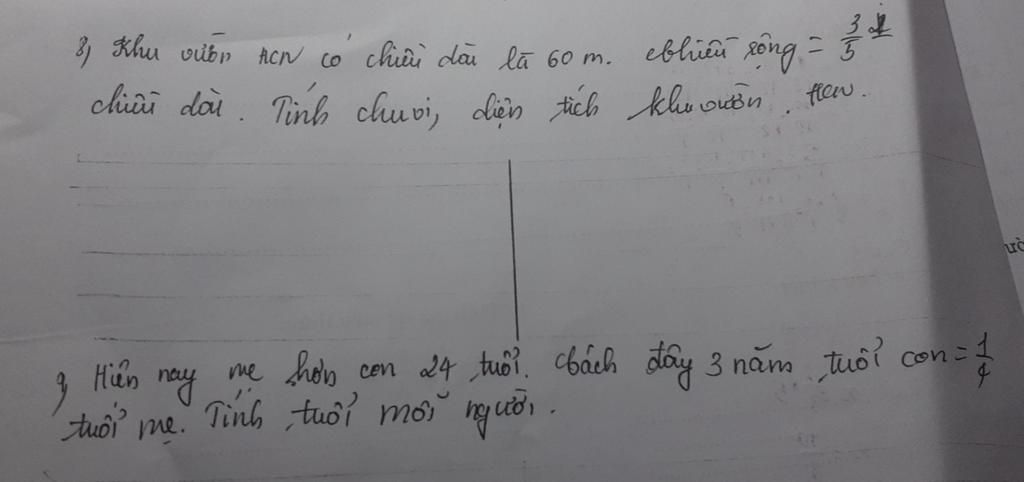 8, Khu vườn HCN có chiều dài là 60 m. Chiều rộng = 3/5
chiều dài. Tính chu vi, diện tích khu vườn HCN.
9, Hiện nay mẹ hơn con 24 tuổi. Cách đây 3 năm tuổi con = 1/4
tuổi mẹ. Tính tuổi mỗi người.